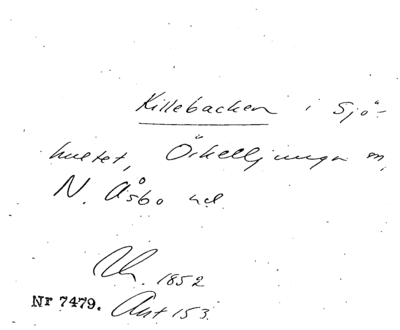 Killebacken i Sjö-
hultet, Örkelljunga sn,
N. Åsbo hd.
1852
Nr 7479. Ant 153.